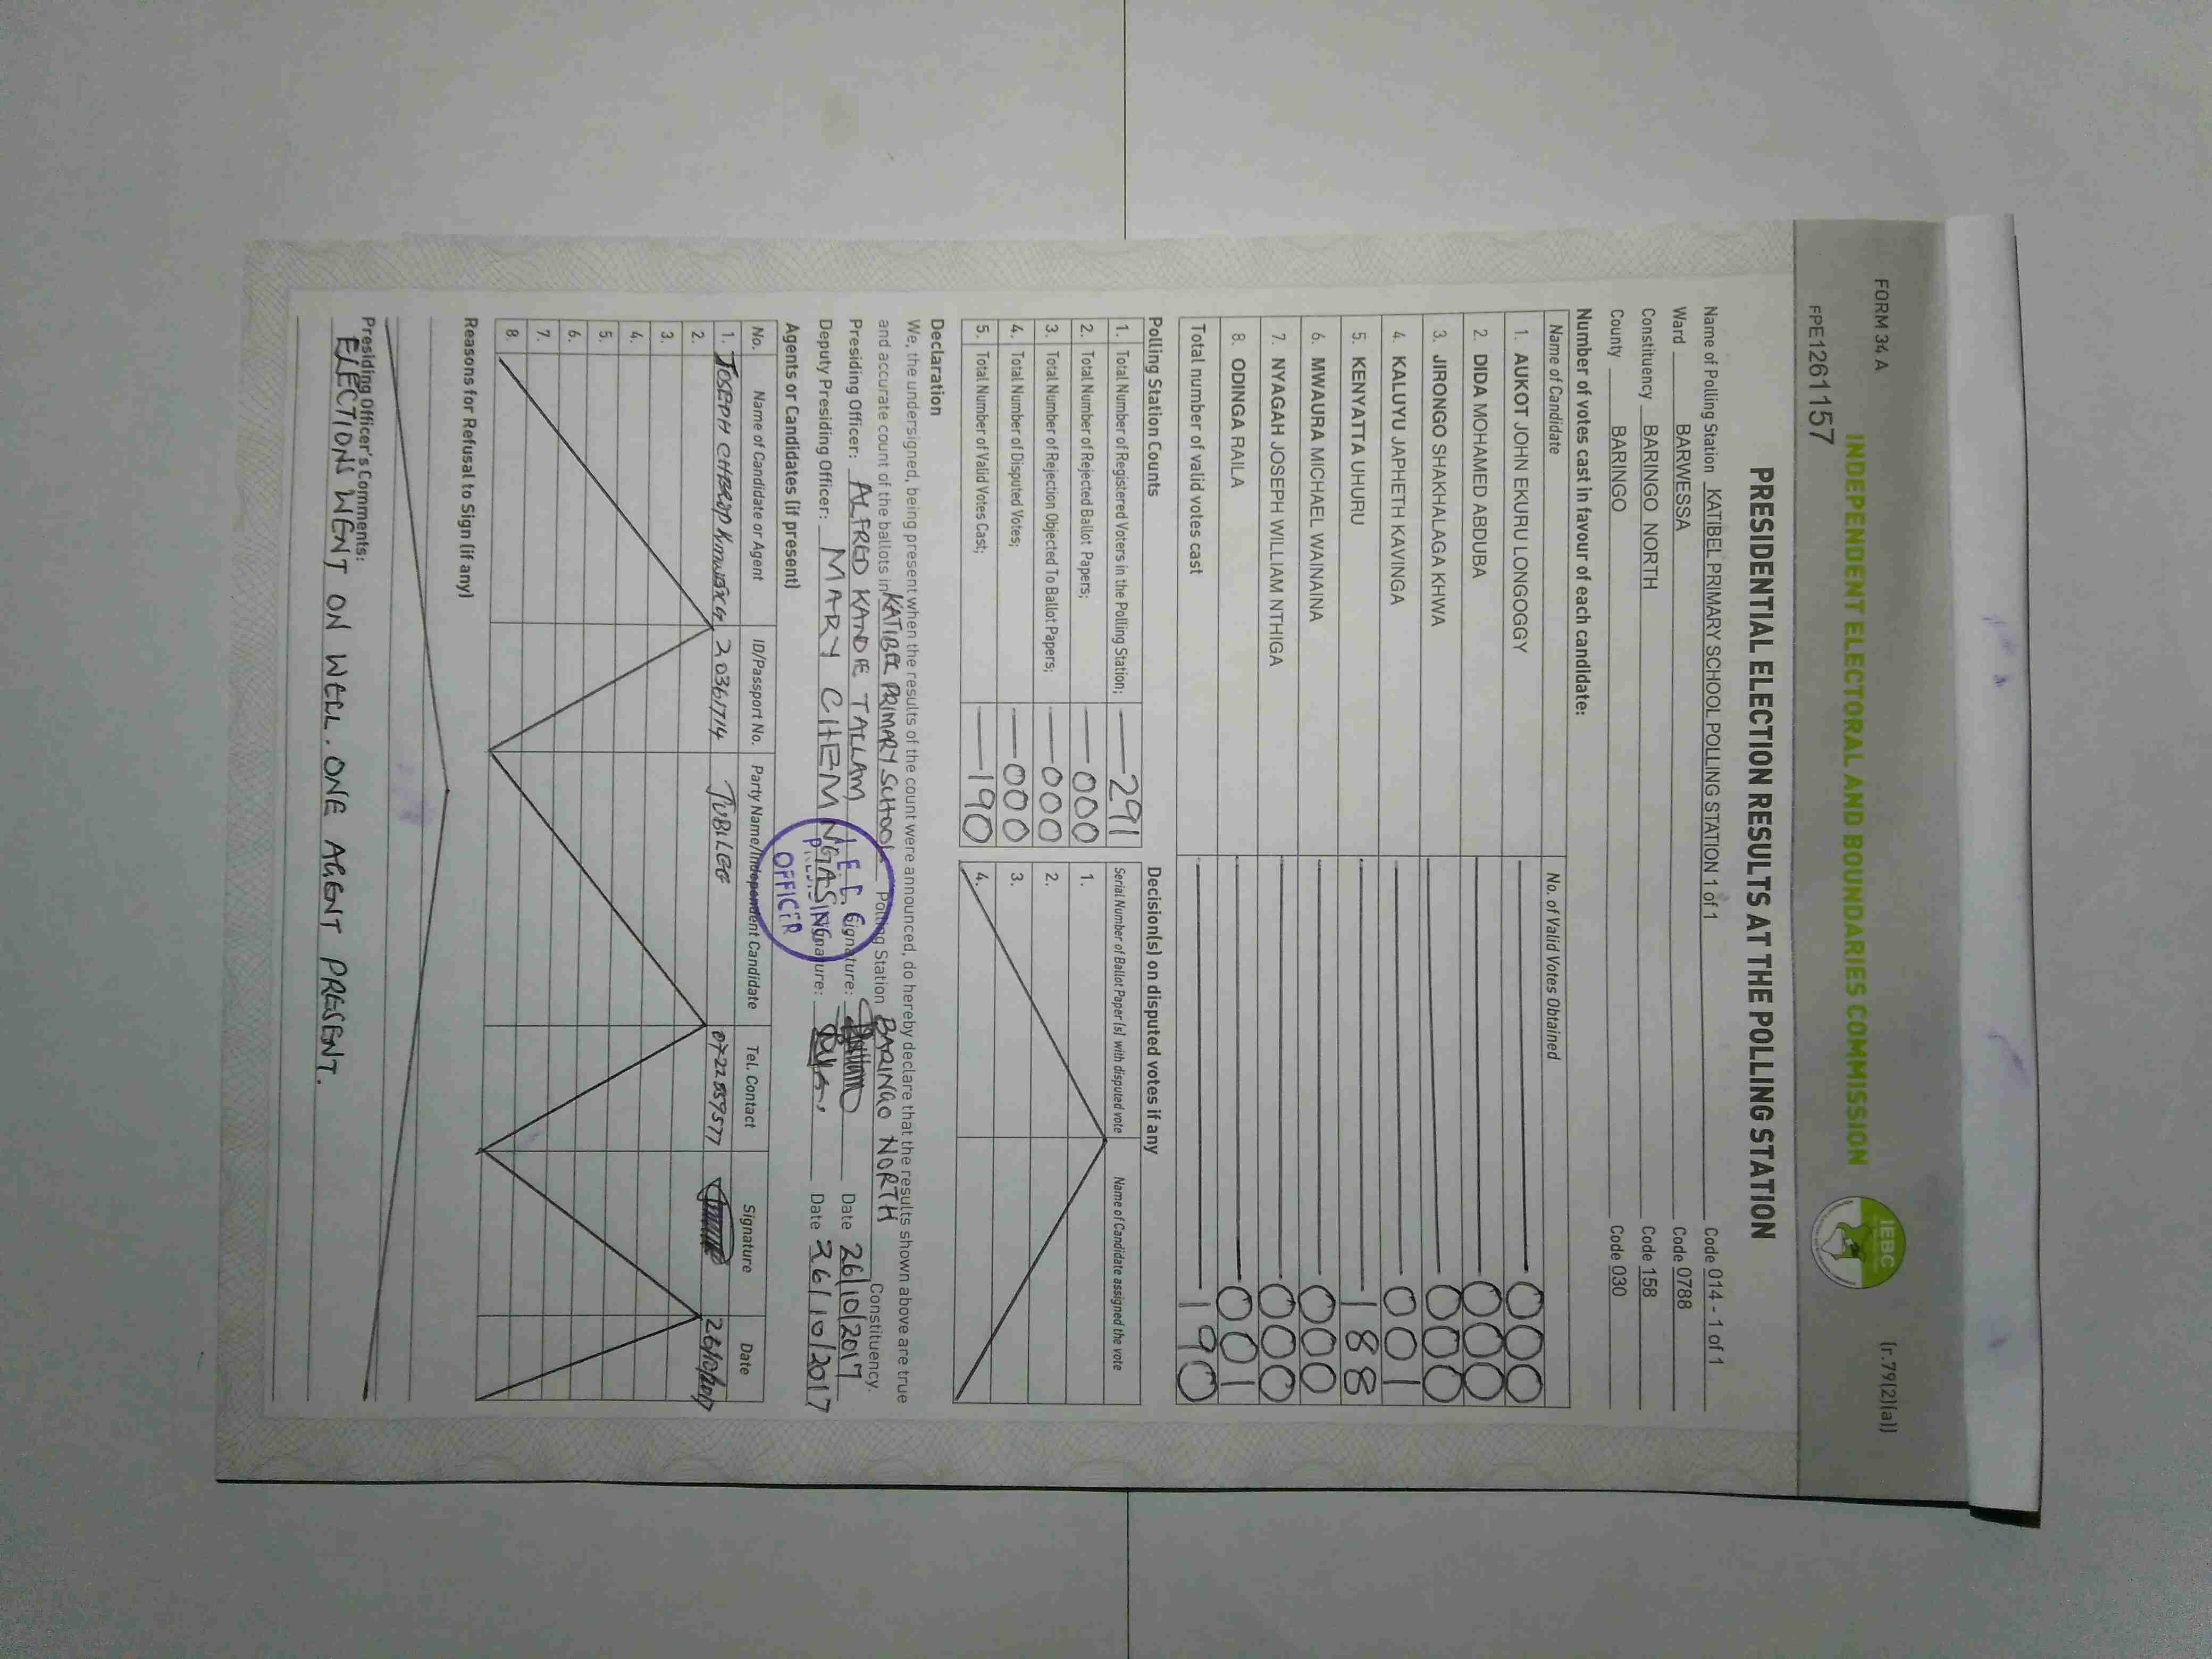 FORM 34 A
(r.79(2)(a))
INDEPENDENT ELECTORAL AND BOUNDARIES COMMISSION
IEBC
FPE1261157
PRESIDENTIAL ELECTION RESULTS AT THE POLLING STATION
Name of Polling Station KATIBEL PRIMARY SCHOOL POLLING STATION 1 of 1 Code 014 - 1 of 1
Ward BARWESSA Code 0788
Constituency BARINGO NORTH Code 158
County BARINGO Code 030
Number of votes cast in favour of each candidate:
Name of Candidate No. of Valid Votes Obtained
1. AUKOT JOHN EKURU LONGOGGY 000
2. DIDA MOHAMED ABDUBA 000
3. JIRONGO SHAKHALAGA KHWA 000
4. KALUYU JAPHETH KAVINGA 001
5. KENYATTA UHURU 188
6. MWAURA MICHAEL WAINAINA 000
7. NYAGAH JOSEPH WILLIAM NTHIGA 000
8. ODINGA RAILA 001
Total number of valid votes cast 190
Polling Station Counts
1. Total Number of Registered Voters in the Polling Station; 291
2. Total Number of Rejected Ballot Papers; 000
3. Total Number of Rejection Objected To Ballot Papers; 000
4. Total Number of Disputed Votes; 000
5. Total Number of Valid Votes Cast; 190
Decision(s) on disputed votes if any
Serial Number of Ballot Paper (s) with disputed vote Name of Candidate assigned the vote
1.
2.
3.
4.
Declaration
We, the undersigned, being present when the results of the count were announced, do hereby declare that the results shown above are true
and accurate count of the ballots in KATIBEL PRIMARY SCHOOL Polling Station BARINGO NORTH Constituency.
Presiding Officer: ALFRED KANDIE TALLAM Signature: Date 26/10/2017
Deputy Presiding Officer: MARY CHEMNGASING Signature: Date 26/10/2017
I.E.C
PRESIDING
OFFICER
Agents or Candidates (if present)
No. Name of Candidate or Agent ID/Passport No. Party Name/Independent Candidate Tel. Contact Signature Date
1. JOSEPH 20361714 JUBILEE 0722859577 26/10/2017
2.
3.
4.
5.
6.
7.
8.
Reasons for Refusal to Sign (if any)
Presiding Officer's Comments:
ELECTIONS WENT ON WELL. ONE AGENT PRESENT.